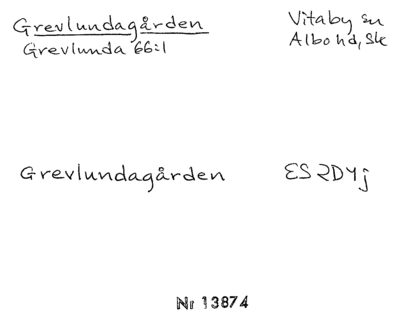 Grevlundagården
Grevlunda 66:1
Vitaby sn
Albo hd, Sk
Grevlundagården
ES 2D4j
Nr 13874